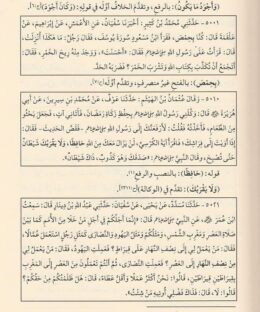 (وَأَجْوَدُ مَا يَكُونُ): بالرفع، وتقدَّم الخلافُ أوَّلَه في قوله: (وَكَانَ أَجْوَدَ)
٥٠٠١ - حَدَّثَنَا مُحَمَّدُ بْنُ كَثِيرٍ، أَخْبَرَنَا سُفْيَانُ، عَنِ الأَعْمَشِ، عَنْ إِبْرَاهِيمَ، عَنْ
عَلْقَمَةَ قَالَ: كُنَّا بِحِمْصَ، فَقَرَأَ ابْنُ مَسْعُودٍ سُورَةَ يُوسُفَ، فَقَالَ رَجُلٌ: مَا هَكَذَا أُنْزِلَتْ،
قَالَ: قَرَأْتُ عَلَى رَسُولِ اللهِ ﷺ فَقَالَ: أَحْسَنْتَ، وَوَجَدَ مِنْهُ رِيحَ الْخَمْرِ، فَقَالَ:
أَتَجْمَعُ أَنْ تُكَذِّبَ بِكِتَابِ اللهِ وَتَشْرَبَ الْخَمْرَ؟ فَضَرَبَهُ الْحَدَّ.
(بِحِمْصَ): بالفتح غير منصرف، وتقدَّم أوَّله
٥٠١٠ - وَقَالَ عُثْمَانُ بْنُ الْهَيْثَمِ: حَدَّثَنَا عَوْفٌ، عَنْ مُحَمَّدِ بْنِ سِيرِينَ، عَنْ أَبِي
هُرَيْرَةَ قَالَ: وَكَّلَنِي رَسُولُ اللهِ ﷺ بِحِفْظِ زَكَاةِ رَمَضَانَ، فَأَتَانِي آتٍ، فَجَعَلَ يَحْثُو
مِنَ الطَّعَامِ، فَأَخَذْتُهُ فَقُلْتُ: لَأَرْفَعَنَّكَ إِلَى رَسُولِ اللهِ ﷺ - فَقَصَّ الْحَدِيثَ - فَقَالَ:
إِذَا أَوَيْتَ إِلَى فِرَاشِكَ فَاقْرَأْ آيَةَ الْكُرْسِيِّ، لَنْ يَزَالَ مَعَكَ مِنَ اللهِ حَافِظًا، وَلَا يَقْرَبُكَ شَيْطَانٌ
حَتَّى تُصْبِحَ، وَقَالَ النَّبِيُّ ﷺ: «صَدَقَكَ وَهُوَ كَذُوبٌ، ذَاكَ شَيْطَانٌ».
قوله: (حَافِظًا): بالنصب والرفع
(وَلَا يَقْرَبُكَ): تقدَّم في (الوكالة)
٥٠٢١ - حَدَّثَنَا مُسَدَّدٌ، عَنْ يَحْيَى، عَنْ سُفْيَانَ: حَدَّثَنِي عَبْدُ اللهِ بْنُ دِينَارٍ قَالَ: سَمِعْتُ
ابْنَ عُمَرَ، عَنِ النَّبِيِّ ﷺ قَالَ: «إِنَّمَا أَجَلُكُمْ فِي أَجَلِ مَنْ خَلَا مِنَ الأُمَمِ كَمَا بَيْنَ
صَلَاةِ الْعَصْرِ وَمَغْرِبِ الشَّمْسِ، وَمَثَلُكُمْ وَمَثَلُ الْيَهُودِ وَالنَّصَارَى كَمَثَلِ رَجُلٍ اسْتَعْمَلَ عُمَّالًا،
فَقَالَ: مَنْ يَعْمَلُ لِي إِلَى نِصْفِ النَّهَارِ عَلَى قِيرَاطٍ؟ فَعَمِلَتِ الْيَهُودُ، فَقَالَ: مَنْ يَعْمَلُ لِي
مِنْ نِصْفِ النَّهَارِ إِلَى الْعَصْرِ؟ فَعَمِلَتِ النَّصَارَى، ثُمَّ أَنْتُمْ تَعْمَلُونَ مِنَ الْعَصْرِ إِلَى الْمَغْرِبِ
بِقِيرَاطَيْنِ قِيرَاطَيْنِ، قَالُوا: نَحْنُ أَكْثَرُ عَمَلًا وَأَقَلُّ عَطَاءً، قَالَ: هَلْ ظَلَمْتُكُمْ مِنْ حَقِّكُمْ؟
قَالُوا: لَا، قَالَ: فَذَاكَ فَضْلِي أُوتِيهِ مَنْ شِئْتُ».